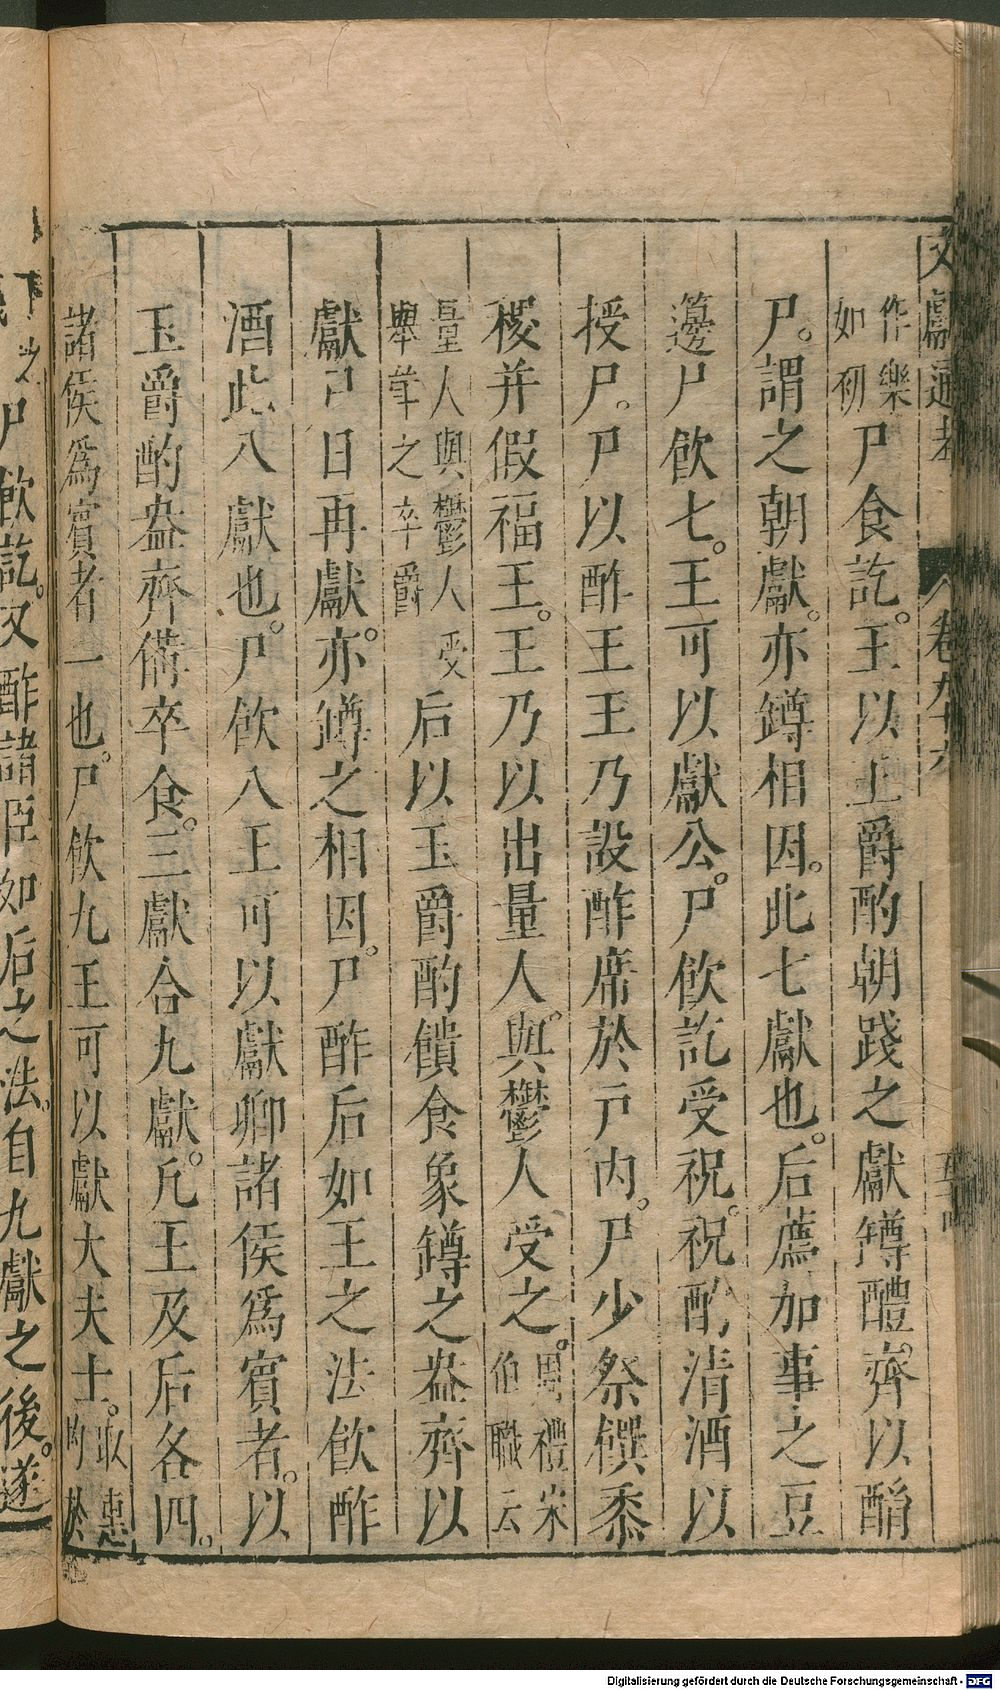 文獻通考 卷九十六
作樂如初尸食訖。王以玉爵酌朝踐之獻罇醴齊以酳
尸。謂之朝獻。亦罇相因。此七獻也。后薦加事之豆
籩尸飲七。王可以獻公。尸飲訖受祝。祝酌清酒以
授尸。尸以酢王王乃設酢席於戸內。尸少祭饌黍
稷并假福王。王乃以出量人。與鬱人受之。周禮宋伯職云
量人與鬱人受舉斝之卒爵后以玉爵酌饋食象罇之盎齊以
獻尸曰再獻。亦罇之相因。尸酢后如王之法飲酢
酒此八獻也。尸飲八王可以獻卿諸侯爲賓者。以
玉爵酌盎齊備卒食。三獻合九獻。凡王及后各四。
諸侯爲賓者一也。尸飲九王可以獻大夫士。
尸飲訖。又酢諸臣如后之法。自九獻之後。遂
Digitalisierung gefördert durch die Deutsche Forschungsgemeinschaft - DFG